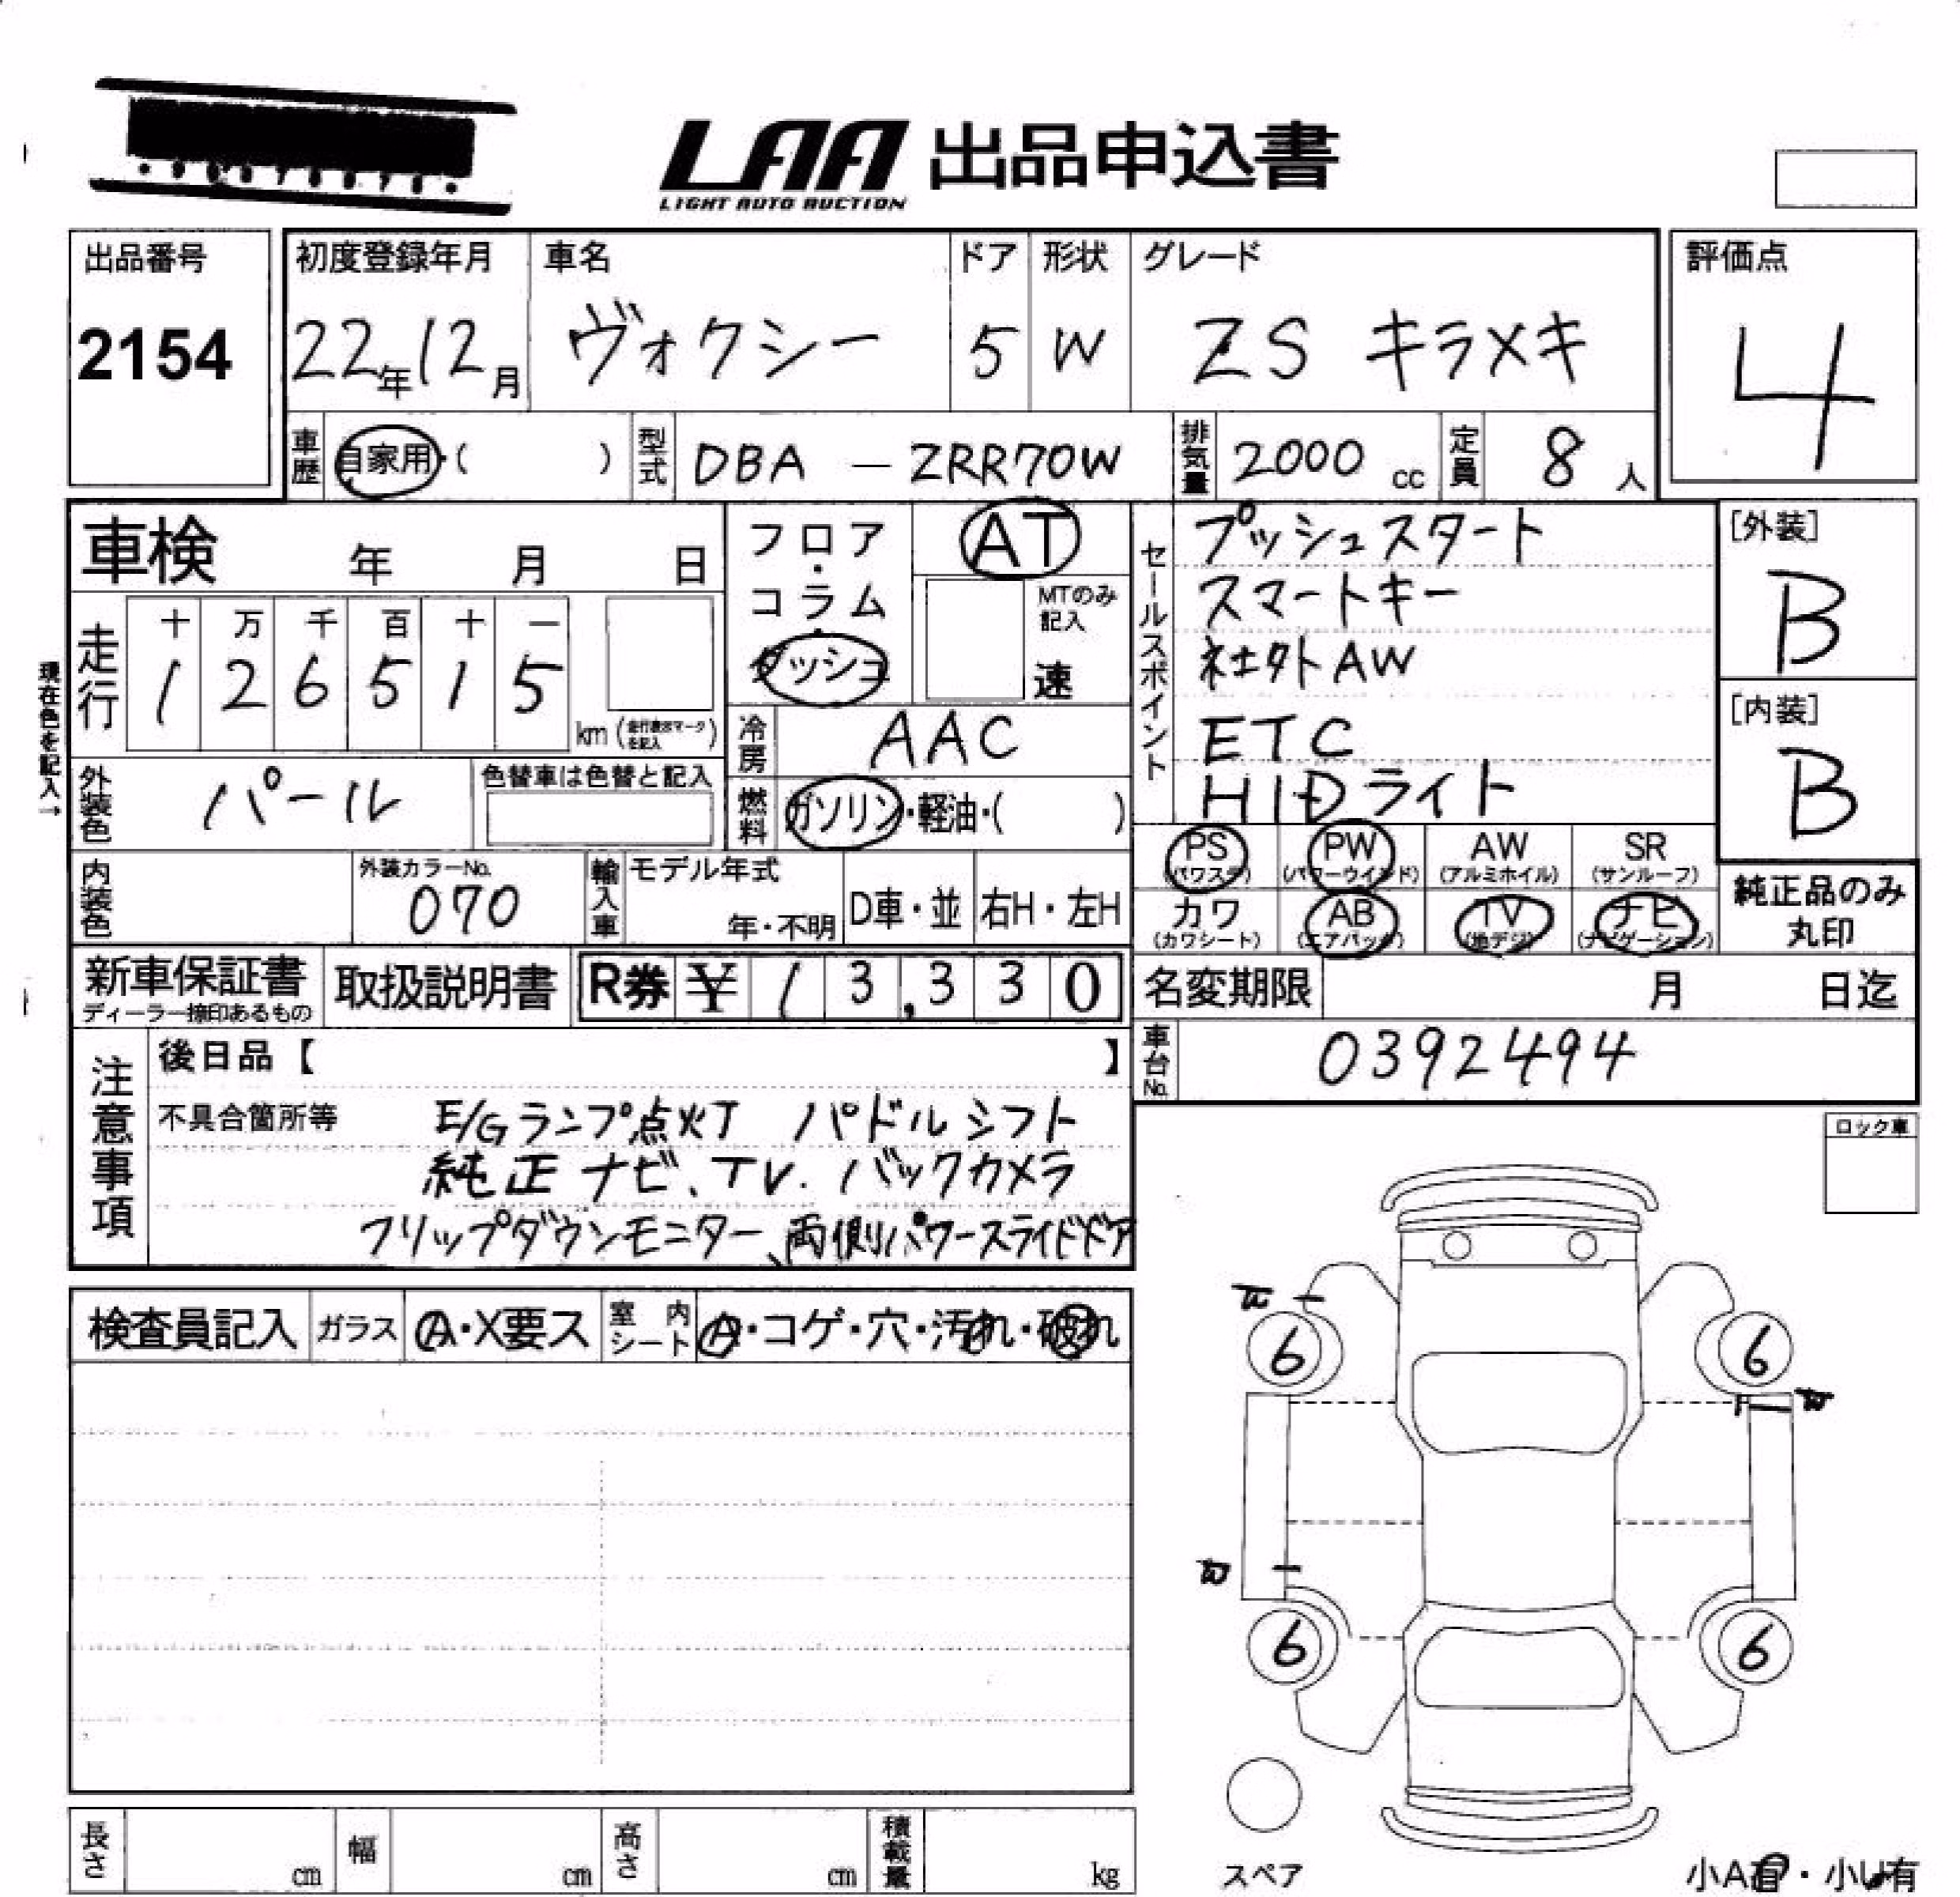 LAA 出品申込書
LIGHT AUTO AUCTION
出品番号
2154
初度登録年月
22年12月
車名
ヴォクシー
ドア
5
形状
W
グレード
ZS キラメキ
評価点
4
車歴
自家用・( )
型式
DBA - ZRR70W
排気量
2000 cc
定員
8 人
車検 年 月 日
フロア・コラム・ダッシュ
AT
MTのみ記入
速
セールスポイント
プッシュスタート
スマートキー
社外AW
ETC
HIDライト
[外装]
B
[内装]
B
現在色を記入→
走行
十 万 千 百 十 一
1 2 6 5 1 5
km (走行表示マークを記入)
冷房
AAC
外装色
パール
色替車は色替と記入
燃料
ガソリン・軽油・( )
PS
(パワステ)
PW
(パワーウインド)
AW
(アルミホイル)
SR
(サンルーフ)
カワ
(カワシート)
AB
(エアバック)
TV
(地デジ)
ナビ
(ナビゲーション)
純正品のみ
丸印
内装色
外装カラーNo.
070
輸入車
モデル年式
年・不明
D車・並
右H・左H
新車保証書
ディーラー捺印あるもの
取扱説明書
R券 ¥ 13,330
名変期限 月 日迄
車台No.
0392494
注意事項
後日品【 】
不具合箇所等 E/Gランプ点灯 パドルシフト
純正ナビ、TV. バックカメラ
フリップダウンモニター、両側パワースライドドア
ロック車
検査員記入
ガラス
A・X要ス
室内シート
A・コゲ・穴・汚れ・破れ
6
6
6
6
スペア
長さ cm
幅 cm
高さ cm
積載量 kg
小A有・小U有